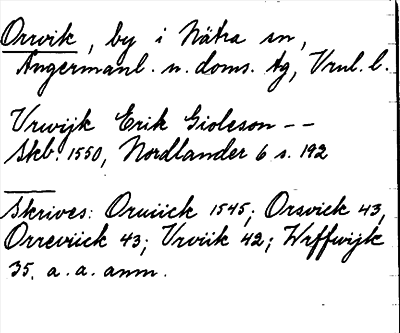 Orrvik, by i Nätra sn,
Ångermanl. n. doms. tg, Vrnl. l.
Vrwijk Erik Gioleson --
Skb. 1550, Nordlander 6 s. 192
Skrives: Oruiick 1545; Orsvick 43,
Orreviick 43; Vrviik 42; Wrffwijk
35. a. a. anm.